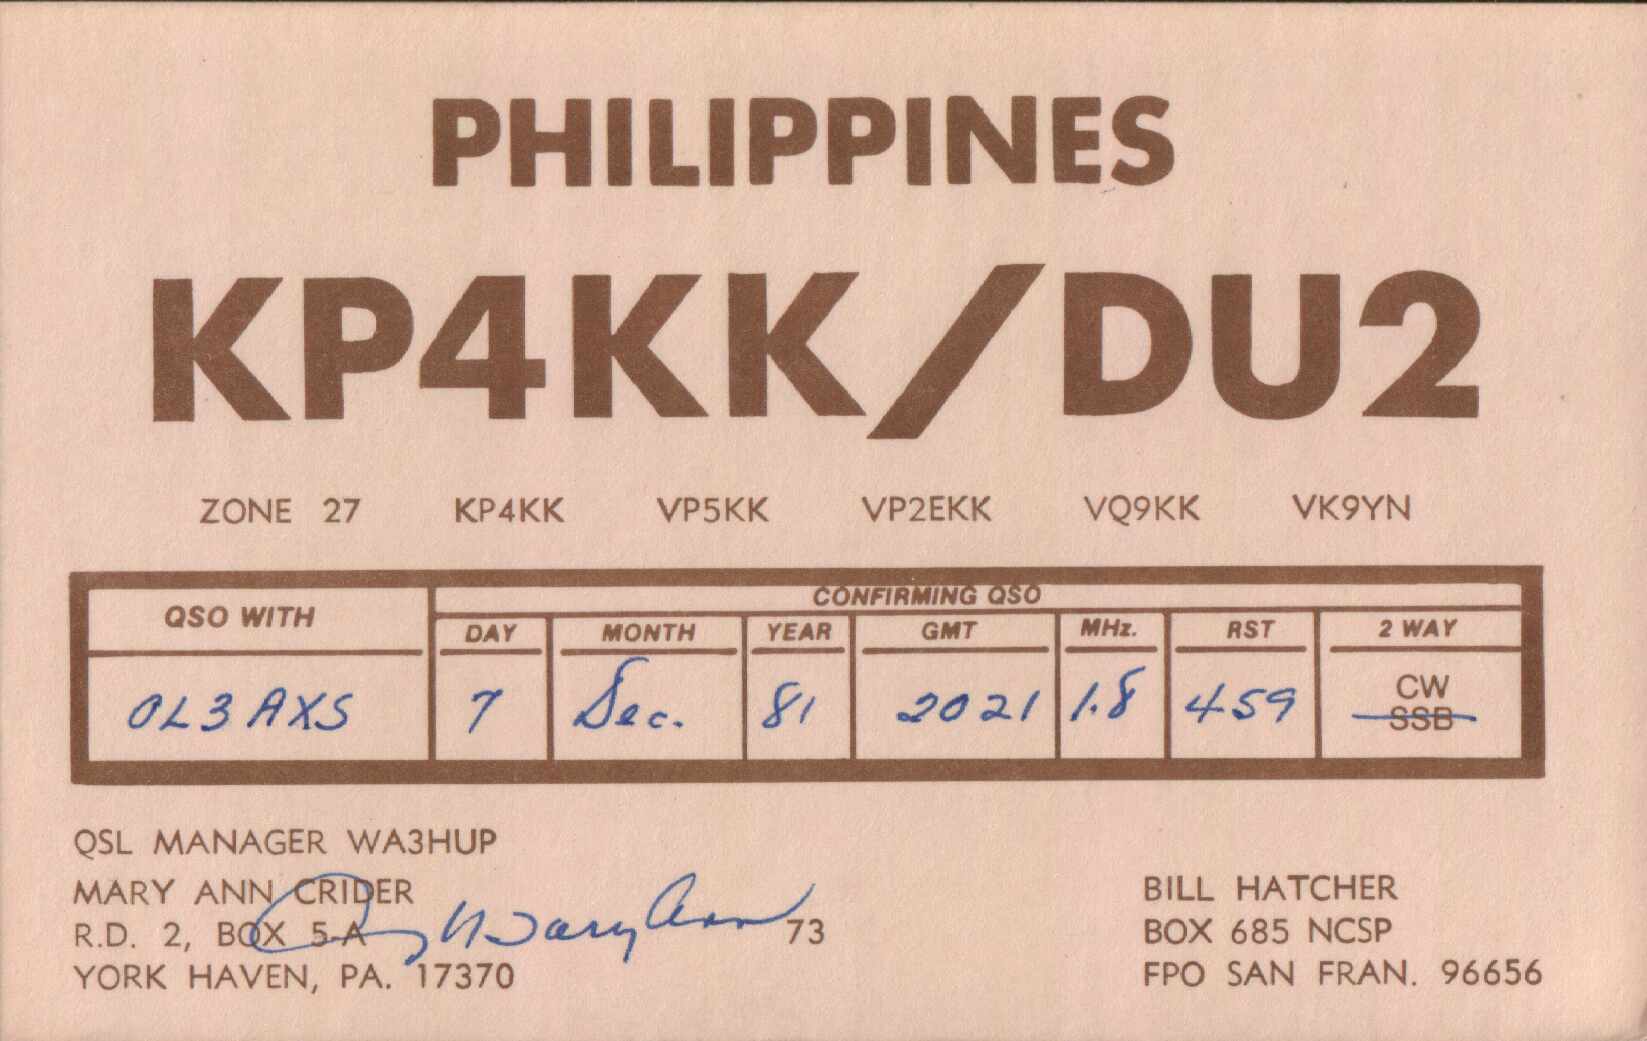 PHILIPPINES
KP4KK/DU2
ZONE 27 KP4KK VP5KK VP2EKK VQ9KK VK9YN
QSO WITH CONFIRMING QSO
DAY MONTH YEAR GMT MHz. RST 2 WAY
OL3AXS 7 Dec. 81 2021 1.8 459 CW
SSB
QSL MANAGER WA3HUP
MARY ANN CRIDER
R.D. 2, BOX 5-A Mary Ann 73
YORK HAVEN, PA. 17370
BILL HATCHER
BOX 685 NCSP
FPO SAN FRAN. 96656